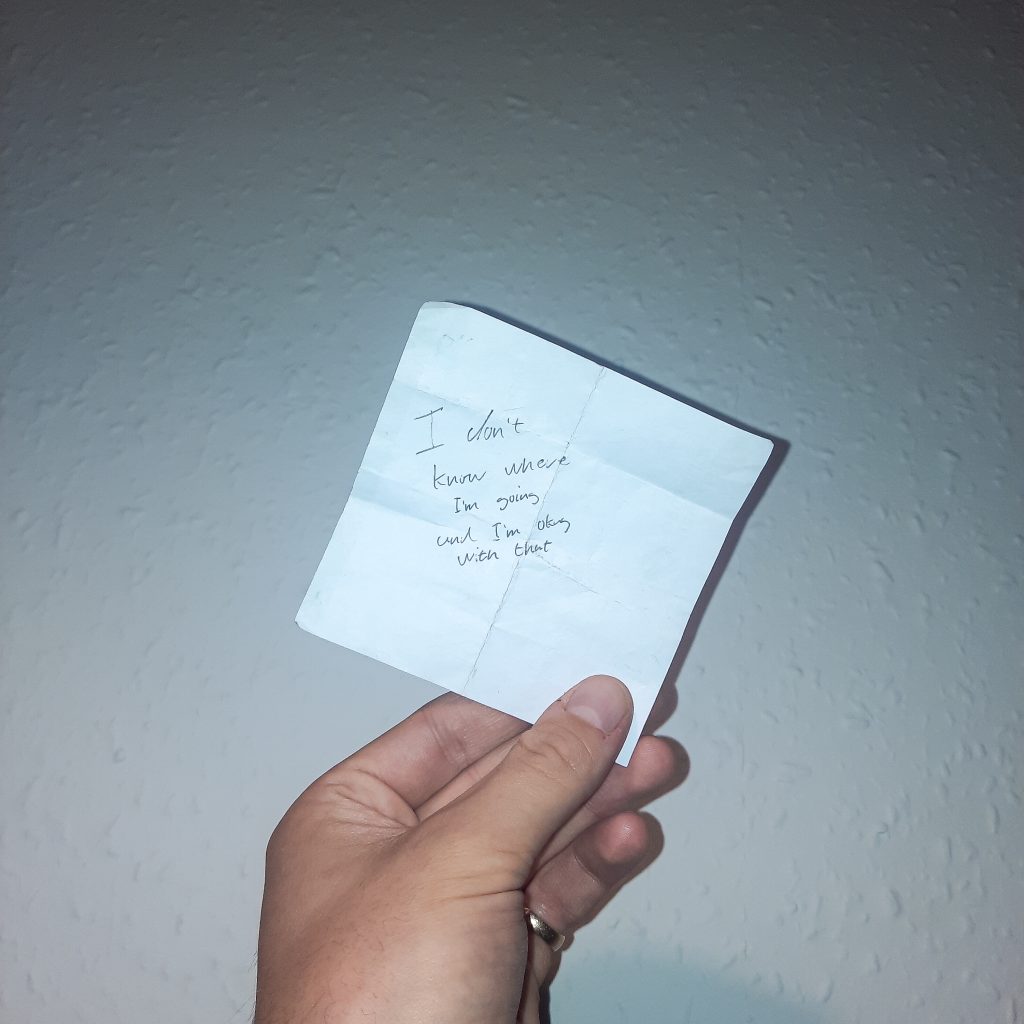 I don't
know where
I'm going
and I'm okay
with that